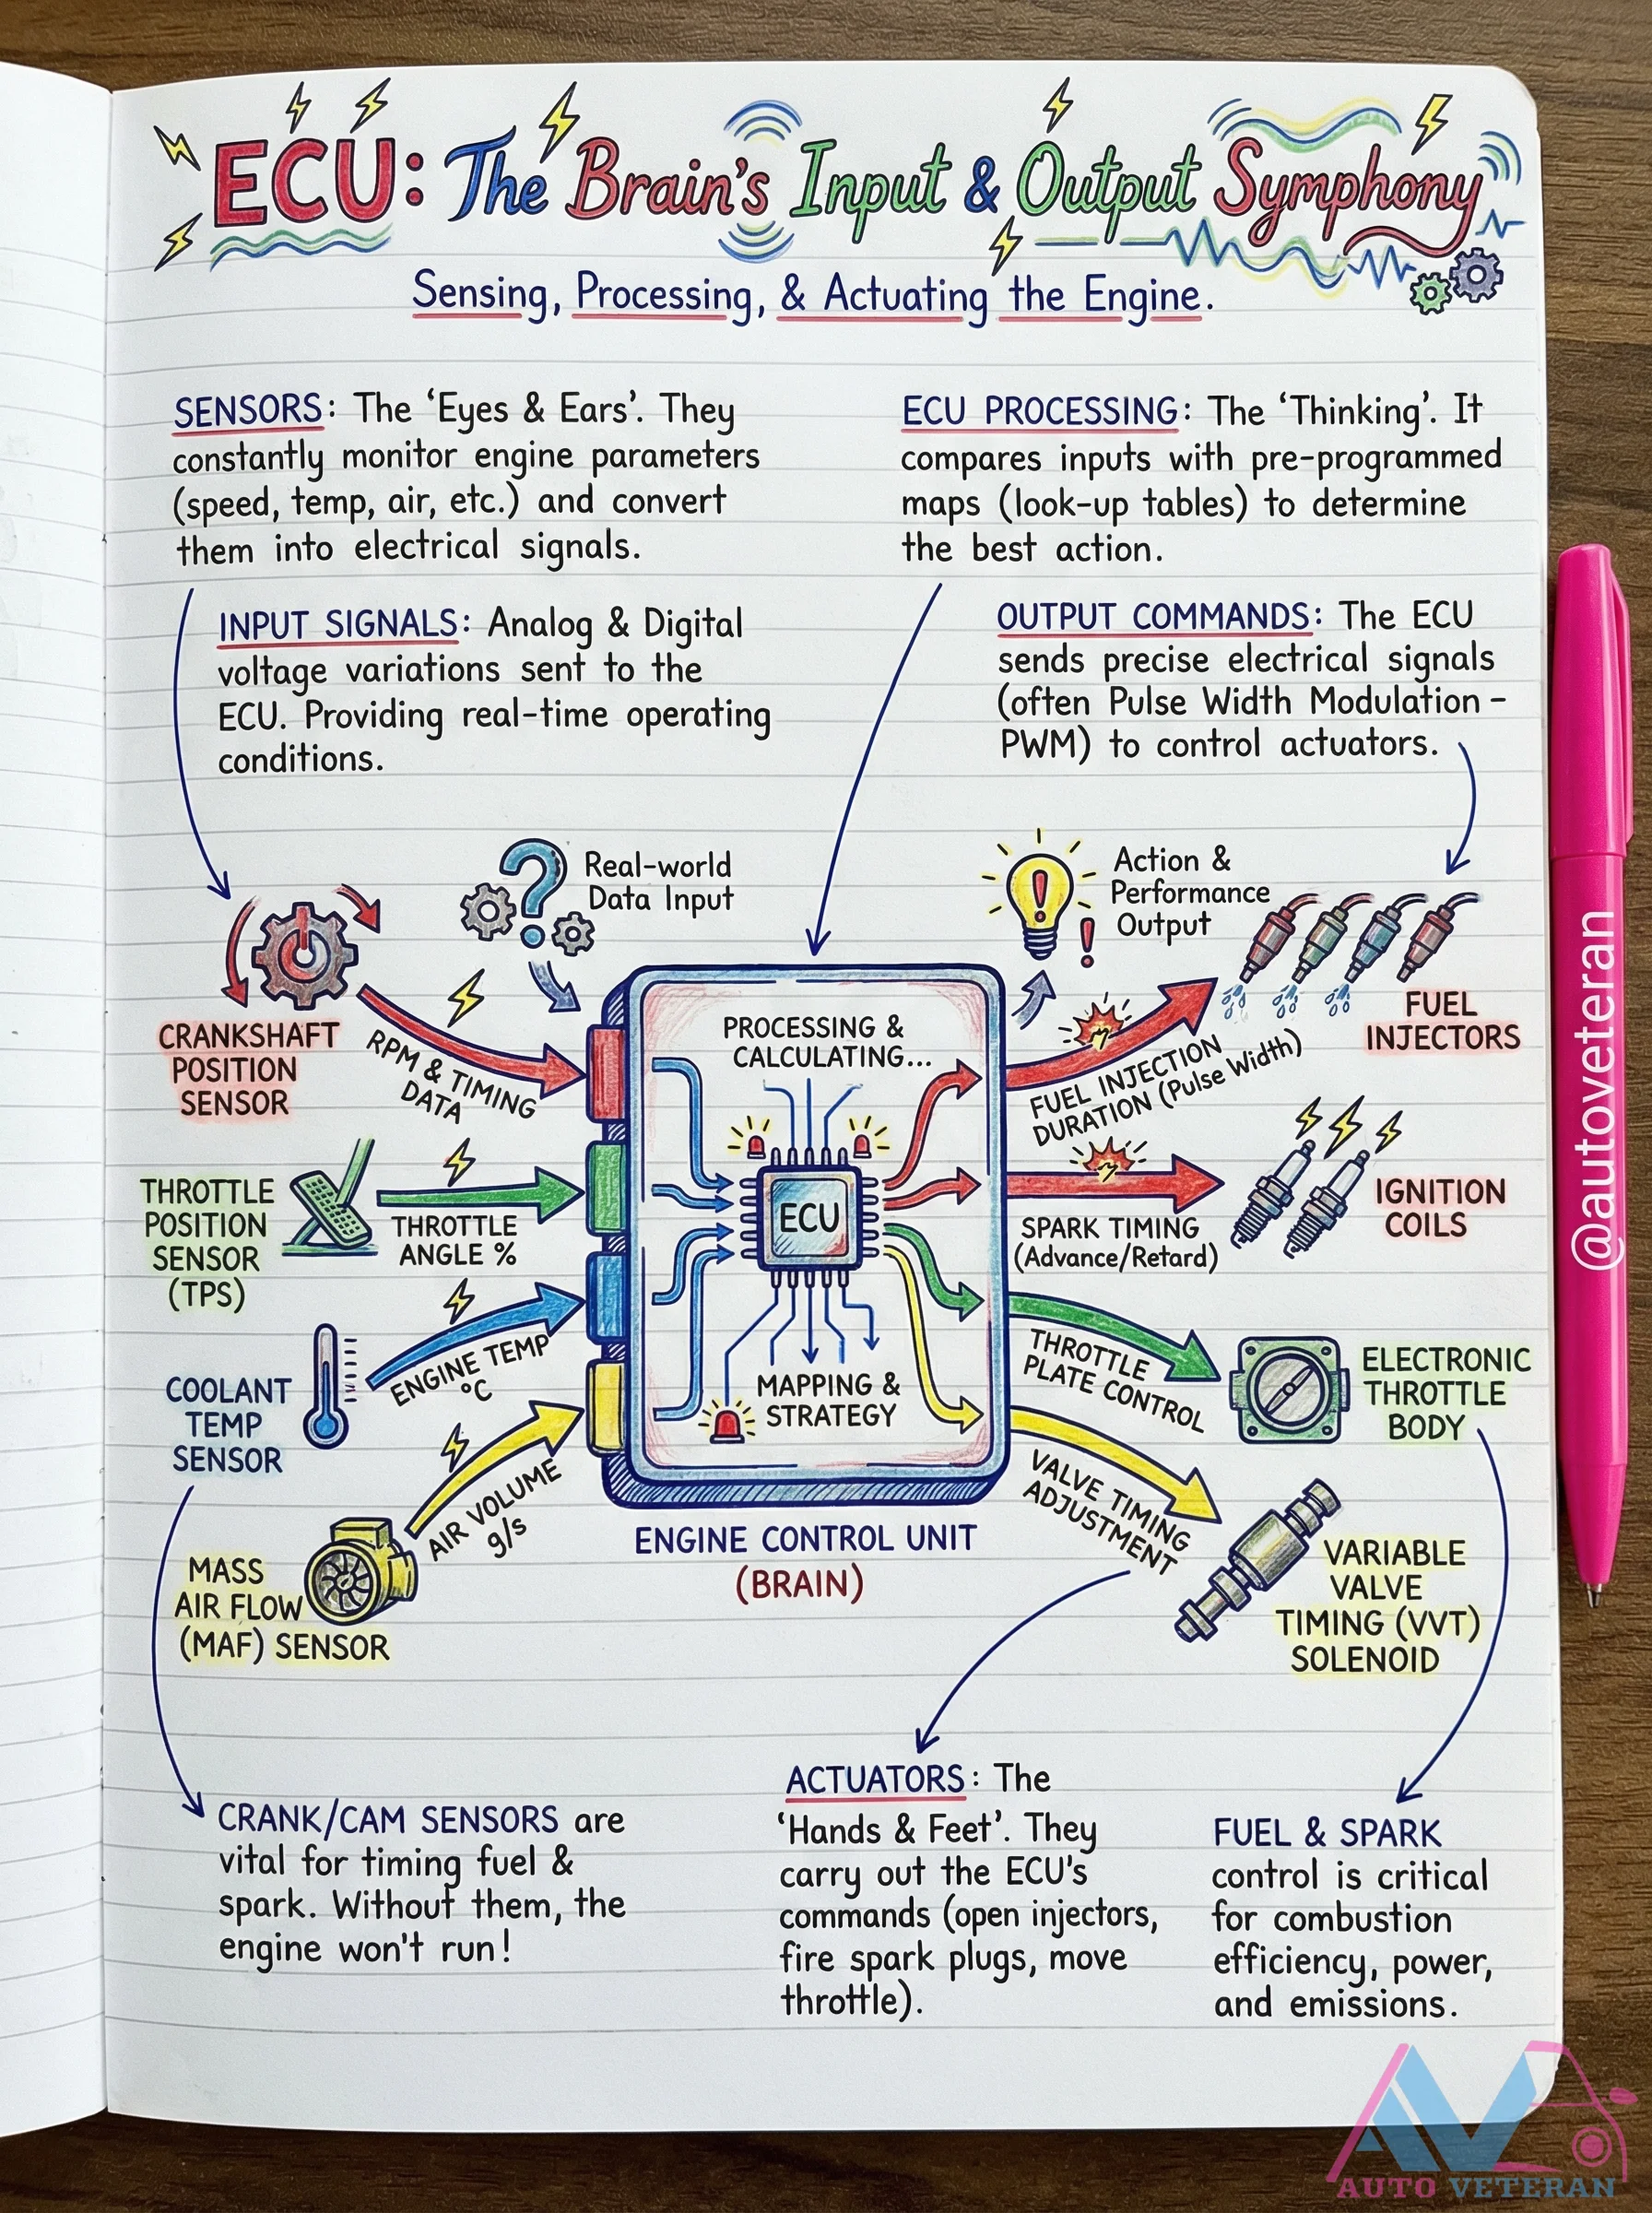 ECU: The Brain's Input & Output Symphony
Sensing, Processing, & Actuating the Engine.
SENSORS: The 'Eyes & Ears'. They
constantly monitor engine parameters
(speed, temp, air, etc.) and convert
them into electrical signals.
INPUT SIGNALS: Analog & Digital
voltage variations sent to the
ECU. Providing real-time operating
conditions.
ECU PROCESSING: The 'Thinking'. It
compares inputs with pre-programmed
maps (look-up tables) to determine
the best action.
OUTPUT COMMANDS: The ECU
sends precise electrical signals
(often Pulse Width Modulation -
PWM) to control actuators.
Real-world
Data Input
Action &
Performance
Output
CRANKSHAFT
POSITION
SENSOR
RPM & TIMING
DATA
THROTTLE
POSITION
SENSOR
(TPS)
THROTTLE
ANGLE %
COOLANT
TEMP
SENSOR
ENGINE TEMP
°C
MASS
AIR FLOW
(MAF) SENSOR
AIR VOLUME
g/s
PROCESSING &
CALCULATING...
ECU
MAPPING &
STRATEGY
ENGINE CONTROL UNIT
(BRAIN)
FUEL INJECTION
DURATION (Pulse Width)
FUEL
INJECTORS
SPARK TIMING
(Advance/Retard)
IGNITION
COILS
THROTTLE
PLATE CONTROL
ELECTRONIC
THROTTLE
BODY
VALVE TIMING
ADJUSTMENT
VARIABLE
VALVE
TIMING (VVT)
SOLENOID
CRANK/CAM SENSORS are
vital for timing fuel &
spark. Without them, the
engine won't run!
ACTUATORS: The
'Hands & Feet'. They
carry out the ECU's
commands (open injectors,
fire spark plugs, move
throttle).
FUEL & SPARK
control is critical
for combustion
efficiency, power,
and emissions.
@autoveteran
AV
AUTO VETERAN